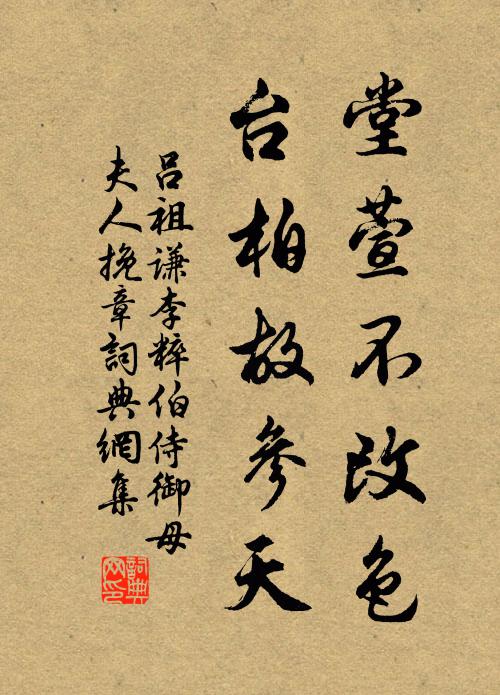 堂萱不改色
台柏故參天
呂祖謙李粹伯侍御母
夫人挽章詞典網集
詞典网印